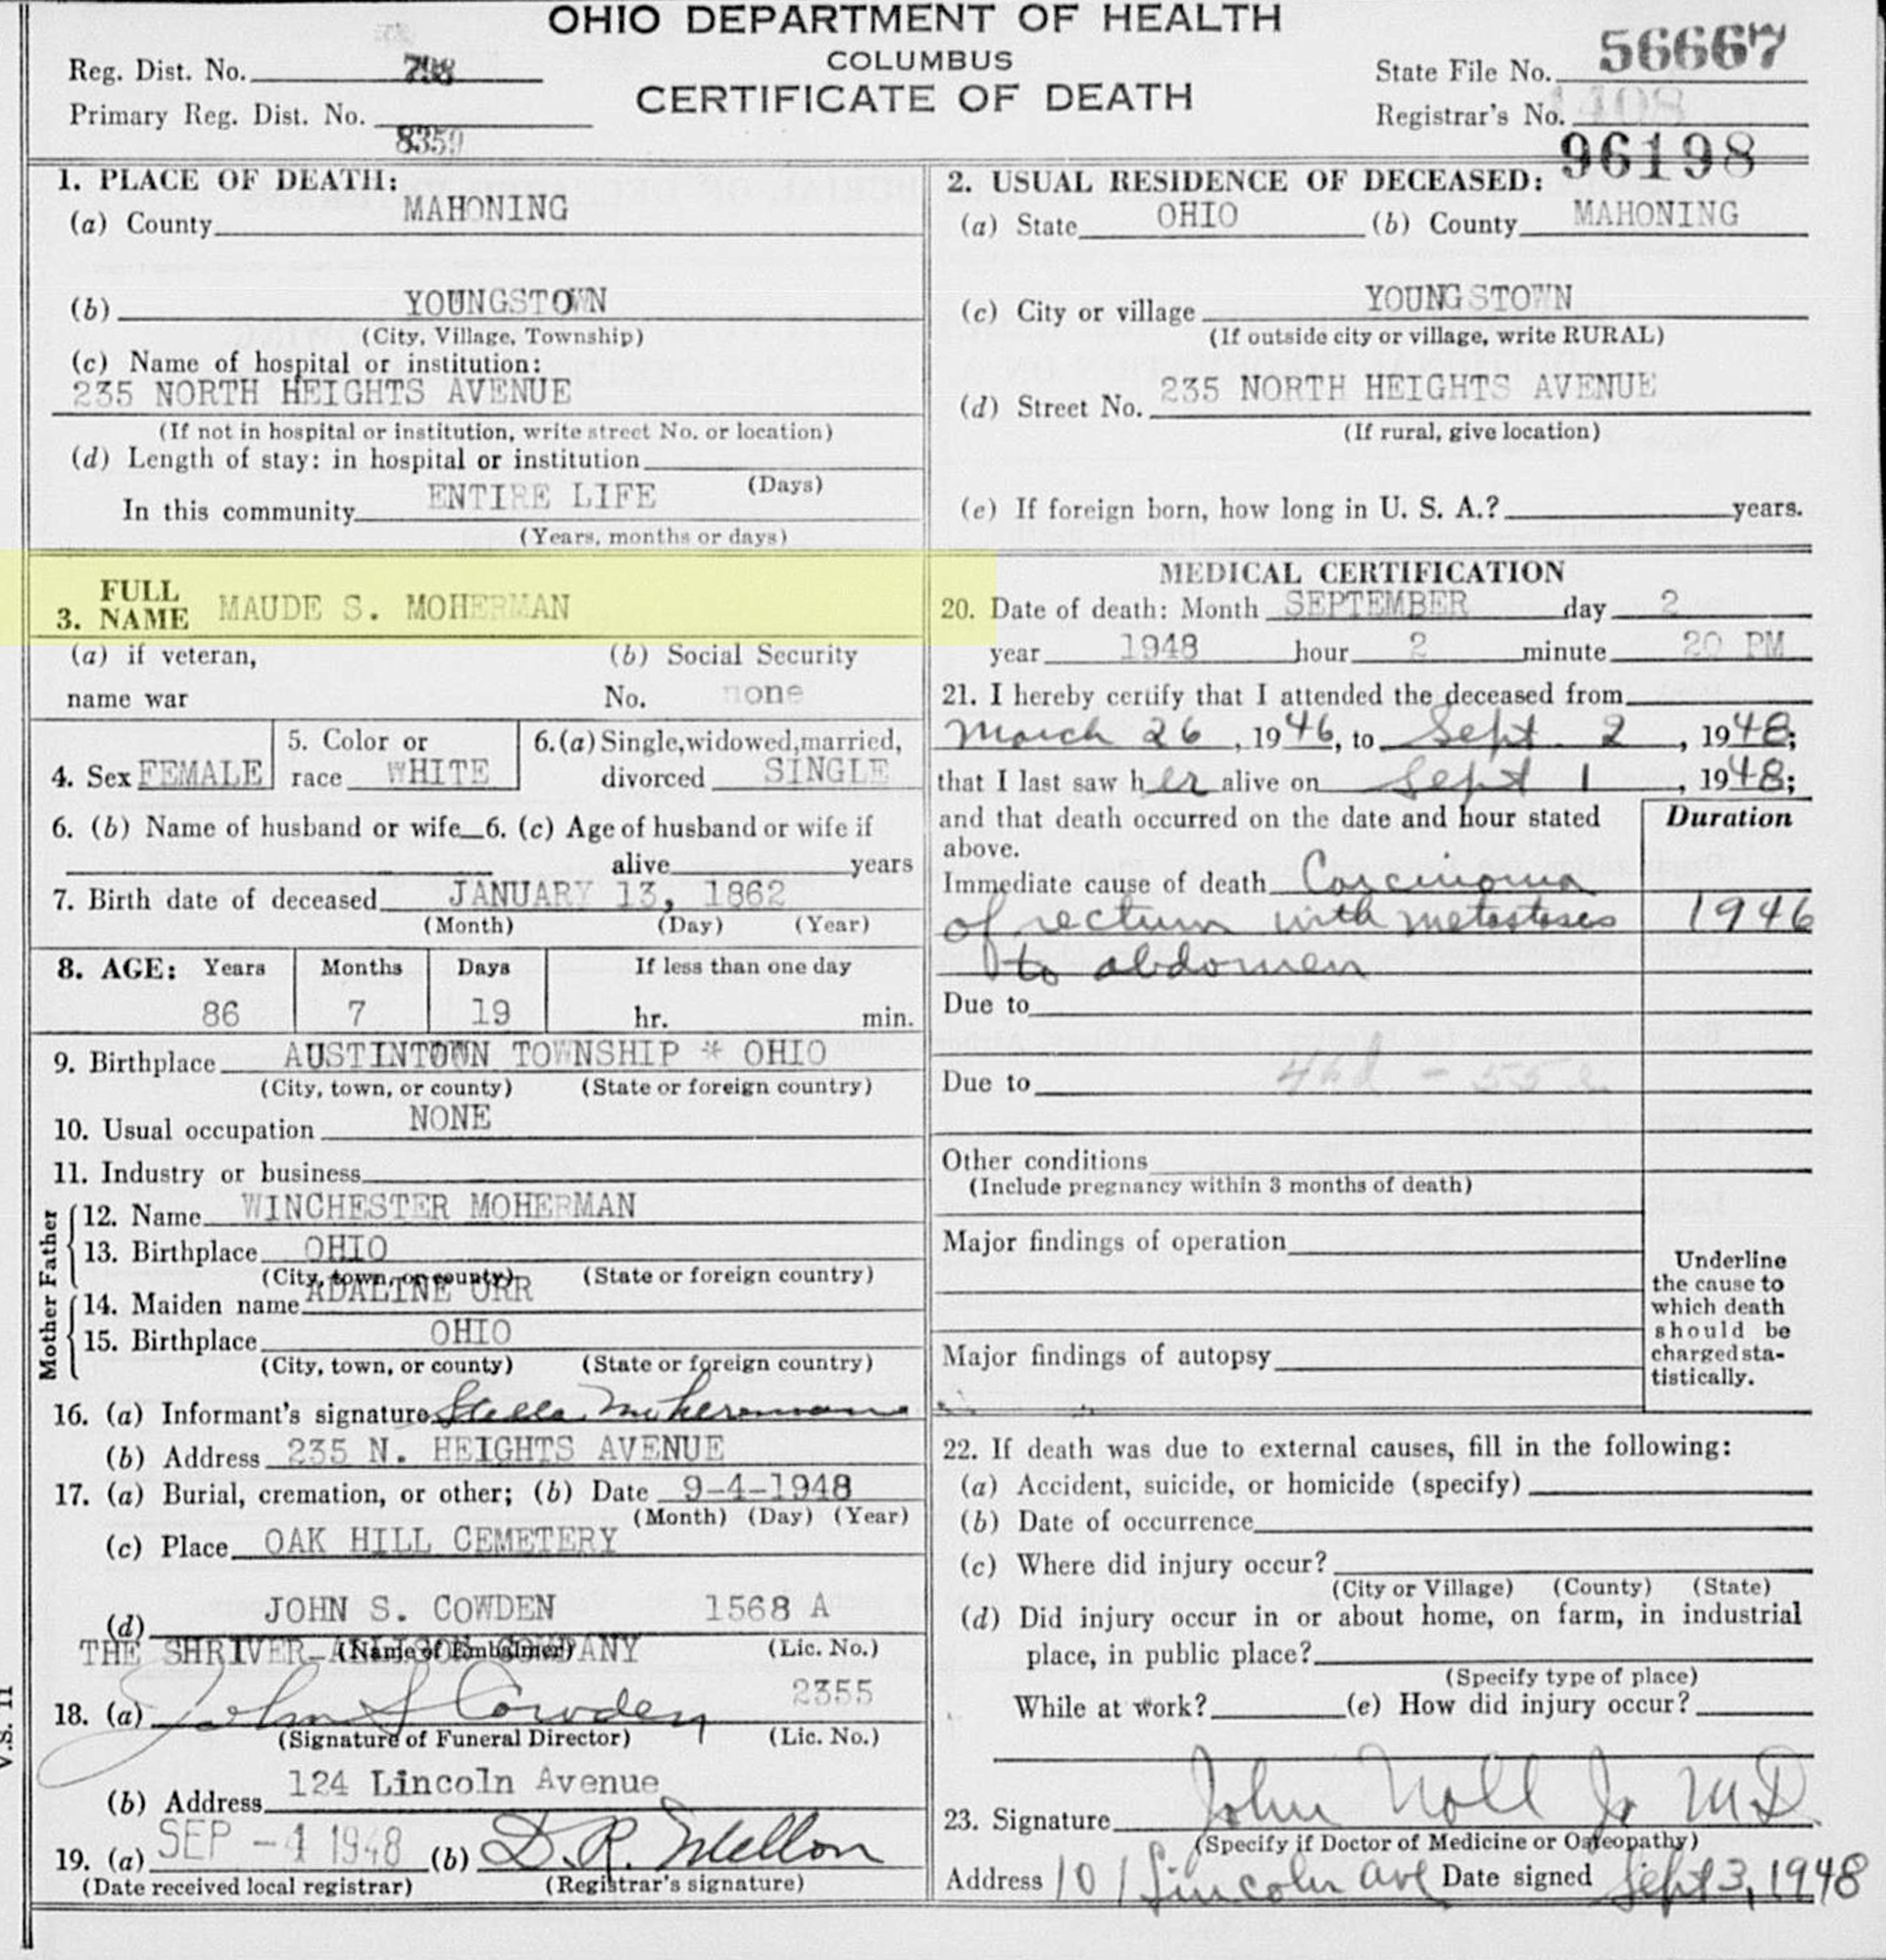 OHIO DEPARTMENT OF HEALTH
COLUMBUS
CERTIFICATE OF DEATH
Reg. Dist. No. 798
Primary Reg. Dist. No. 8359
State File No. 56667
Registrar's No. 1408
96198
1. PLACE OF DEATH:
(a) County MAHONING
(b) YOUNGSTOWN
(City, Village, Township)
(c) Name of hospital or institution:
235 NORTH HEIGHTS AVENUE
(If not in hospital or institution, write street No. or location)
(d) Length of stay: in hospital or institution
(Days)
In this community ENTIRE LIFE
(Years, months or days)
2. USUAL RESIDENCE OF DECEASED:
(a) State OHIO (b) County MAHONING
(c) City or village YOUNGSTOWN
(If outside city or village, write RURAL)
(d) Street No. 235 NORTH HEIGHTS AVENUE
(If rural, give location)
(e) If foreign born, how long in U. S. A.? years.
3. FULL NAME MAUDE S. MOHERMAN
(a) if veteran, (b) Social Security
name war No. none
4. Sex FEMALE 5. Color or race WHITE 6.(a) Single, widowed, married, divorced SINGLE
6. (b) Name of husband or wife 6. (c) Age of husband or wife if
alive years
7. Birth date of deceased JANUARY 13, 1862
(Month) (Day) (Year)
8. AGE: Years Months Days If less than one day
86 7 19 hr. min.
9. Birthplace AUSTINTOWN TOWNSHIP * OHIO
(City, town, or county) (State or foreign country)
10. Usual occupation NONE
11. Industry or business
Father
12. Name WINCHESTER MOHERMAN
13. Birthplace OHIO
(City, town, or county) (State or foreign country)
Mother
14. Maiden name ADALINE ORR
15. Birthplace OHIO
(City, town, or county) (State or foreign country)
16. (a) Informant's signature Stella Moherman
(b) Address 235 N. HEIGHTS AVENUE
17. (a) Burial, cremation, or other; (b) Date 9-4-1948
(Month) (Day) (Year)
(c) Place OAK HILL CEMETERY
(d) JOHN S. COWDEN 1568 A
(Name of Embalmer) (Lic. No.)
THE SHRIVER-ALLISON COMPANY
18. (a) John S Cowden 2355
(Signature of Funeral Director) (Lic. No.)
(b) Address 124 Lincoln Avenue
19. (a) SEP -4 1948 (b) D. R. Mellon
(Date received local registrar) (Registrar's signature)
V.S. 11
MEDICAL CERTIFICATION
20. Date of death: Month SEPTEMBER day 2
year 1948 hour 2 minute 20 PM
21. I hereby certify that I attended the deceased from
March 26, 1946, to Sept 2, 1948;
that I last saw her alive on Sept 1, 1948;
and that death occurred on the date and hour stated
above.
Duration
Immediate cause of death Carcinoma
of rectum with metastases 1946
to abdomen
Due to
Due to
Other conditions
(Include pregnancy within 3 months of death)
Major findings of operation
Major findings of autopsy
Underline
the cause to
which death
should be
charged sta-
tistically.
22. If death was due to external causes, fill in the following:
(a) Accident, suicide, or homicide (specify)
(b) Date of occurrence
(c) Where did injury occur?
(City or Village) (County) (State)
(d) Did injury occur in or about home, on farm, in industrial
place, in public place?
(Specify type of place)
While at work? (e) How did injury occur?
23. Signature John Noll Jr MD
(Specify if Doctor of Medicine or Osteopathy)
Address 101 Lincoln Ave Date signed Sept 3, 1948